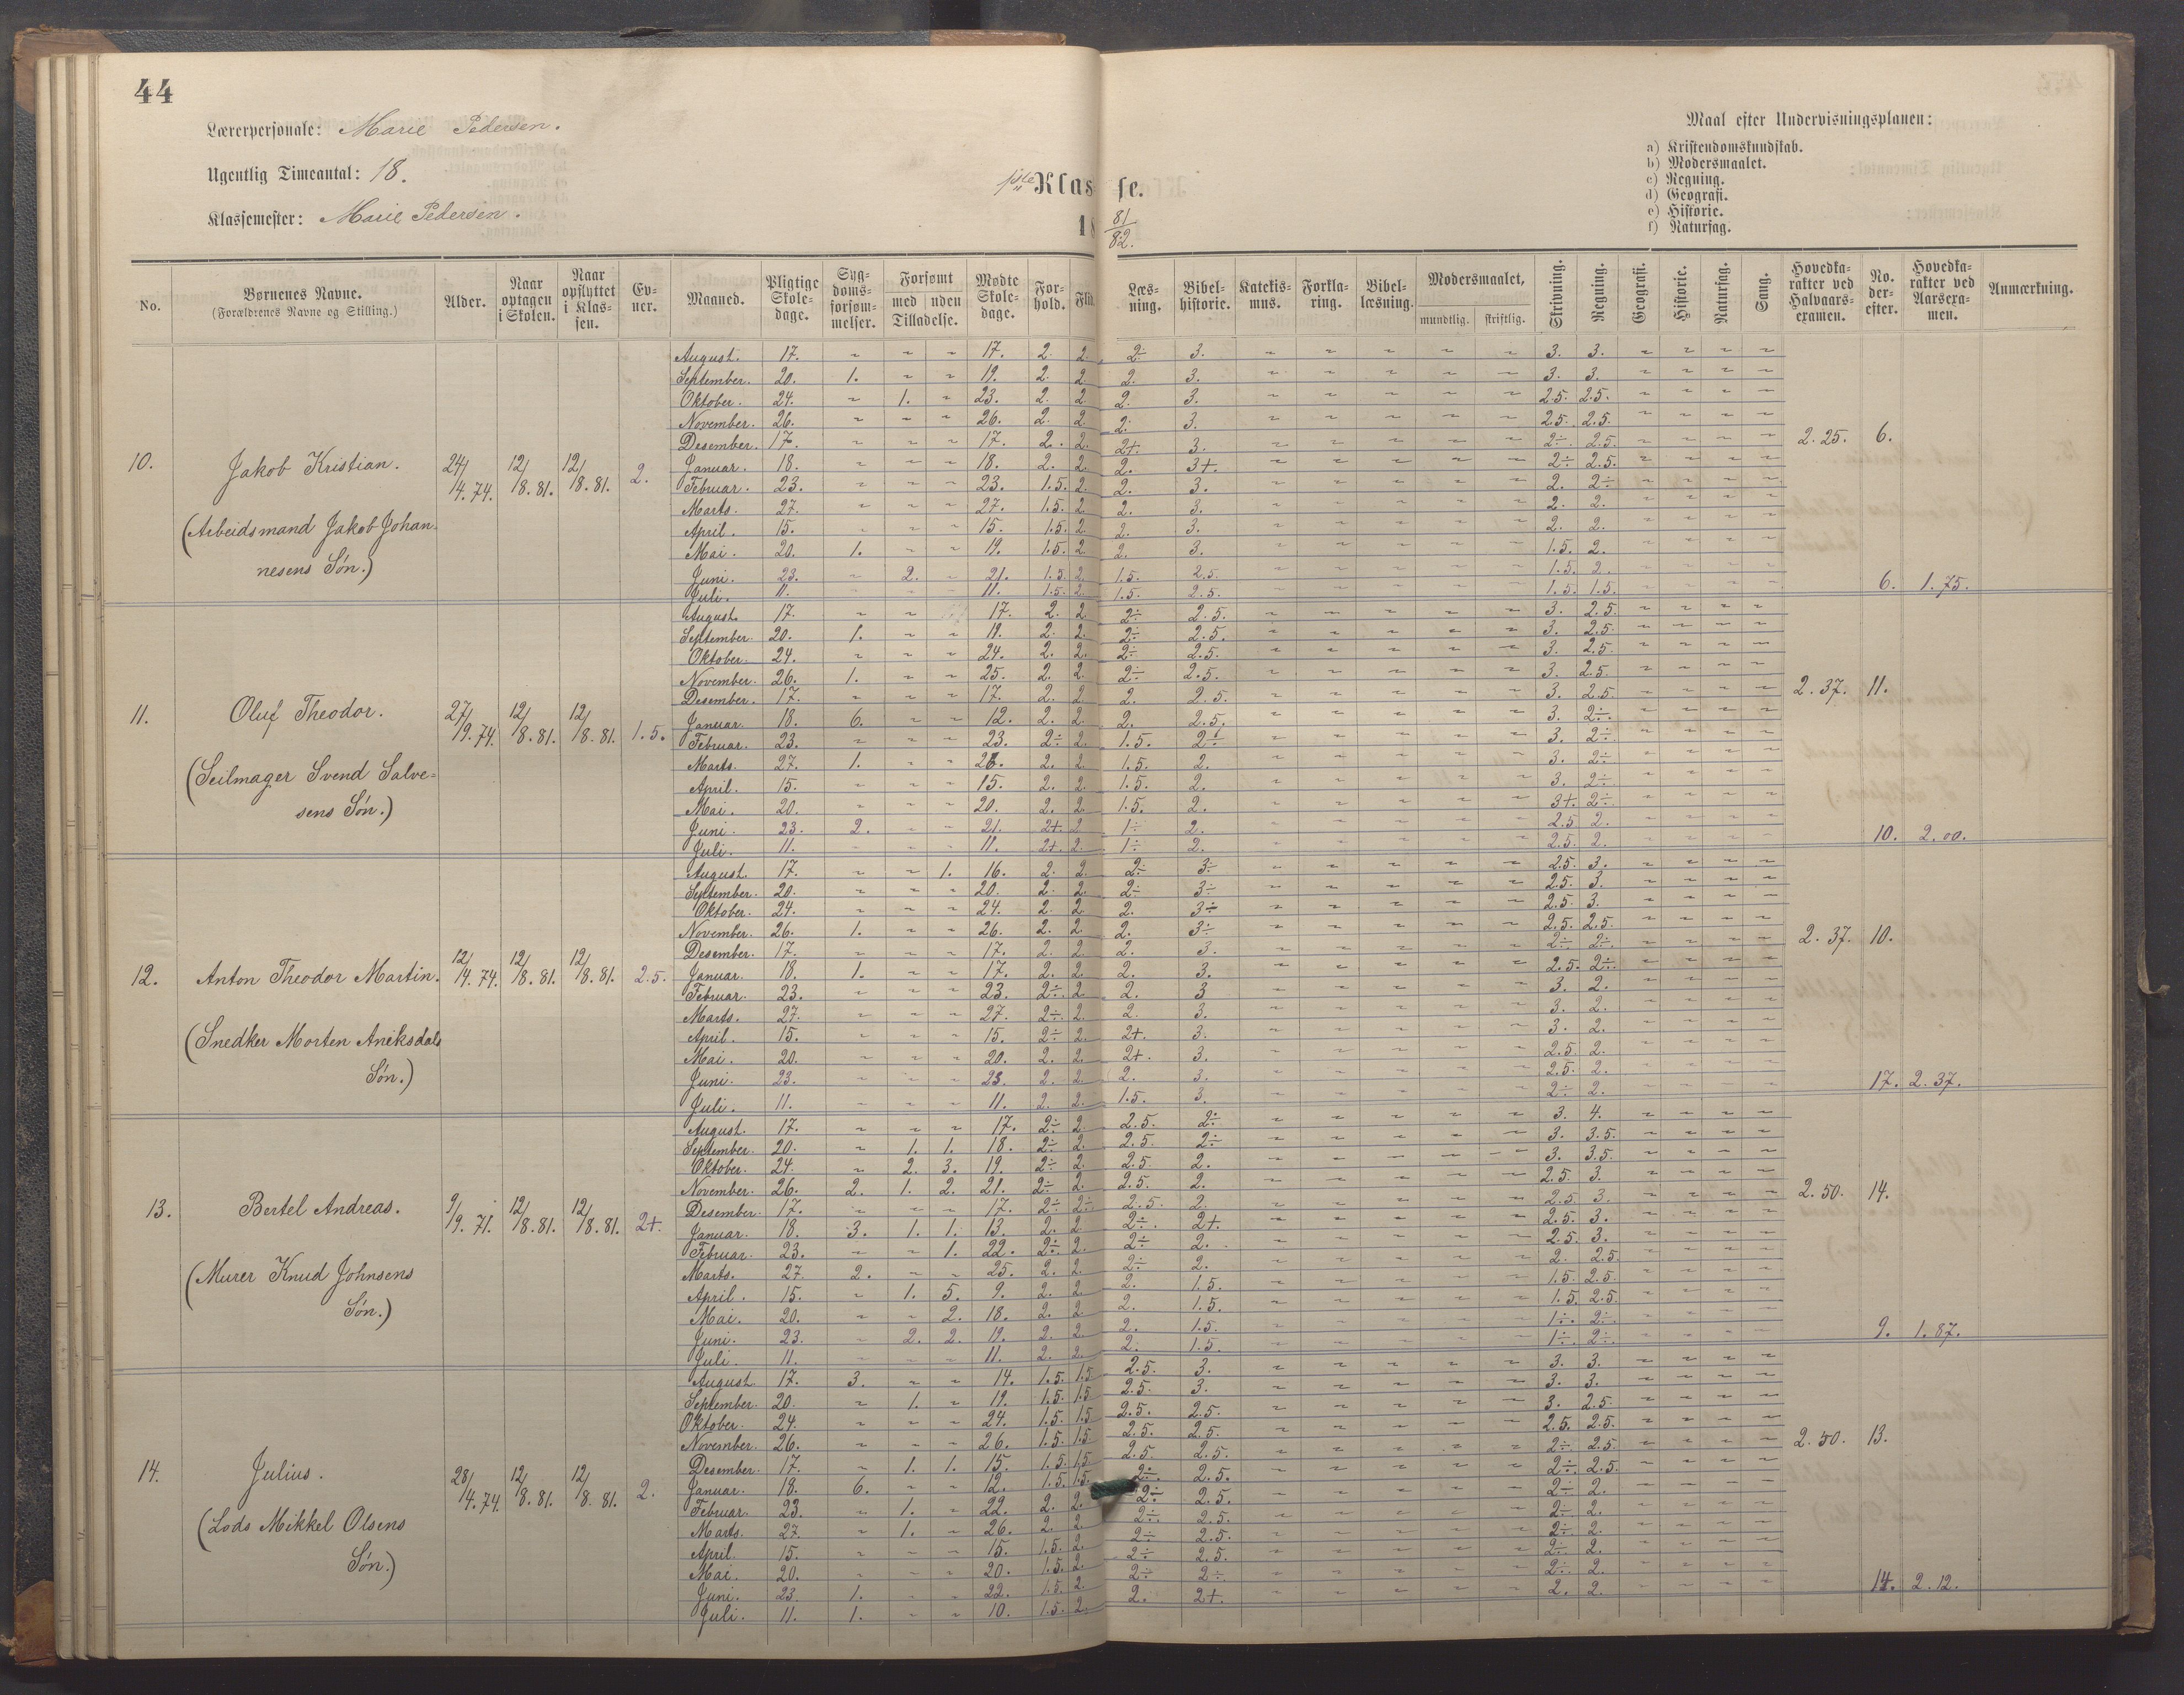 44
Lærerpersonale: Marie Pedersen.
Ugentlig Timeantal: 18.
Klassemester: Marie Pedersen.
1ste Klasse.
18 81/82.
Maal efter Undervisningsplanen:
a) Kristendomskundskab.
b) Modersmaalet.
c) Regning.
d) Geografi.
e) Historie.
f) Naturfag.
No. | Børnenes Navne. (Forældrenes Navne og Stilling.) | Alder. | Naar optagen i Skolen. | Naar opflyttet i Klassen. | Evner. | Maaned. | Pligtige Skoledage. | Sygdomsforsømmelser. | Forsømt med uden Tilladelse. | Mødte Skoledage. | Forhold. | Flid. | Læsning. | Bibelhistorie. | Katekismus. | Forklaring. | Bibellæsning. | Modersmaalet, mundtlig. skriftlig. | Skrivning. | Regning. | Geografi. | Historie. | Naturfag. | Sang. | Hovedkarakter ved Halvaarsexamen. | No. derefter. | Hovedkarakter ved Aarsexamen. | Anmærkning.
10. Jakob Kristian. 24/4.74. 12/8.81. 12/8.81. 2. 2.25. 6.
(Arbeidsmand Jakob Johannesens Søn.)
August. 17. ~ ~ ~ 17. 2. 2. 2÷ 3. ~ ~ ~ ~ ~ 3. 3. ~ ~ ~ ~
September. 20. 1. ~ ~ 19. 2. 2. 2. 3. ~ ~ ~ ~ ~ 3. 3. ~ ~ ~ ~
Oktober. 24. ~ 1. ~ 23. 2. 2. 2. 3. ~ ~ ~ ~ ~ 2.5. 2.5. ~ ~ ~ ~
November. 26. ~ ~ ~ 26. 2. 2. 2. 3. ~ ~ ~ ~ ~ 2.5. 2.5. ~ ~ ~ ~
Desember. 17. ~ ~ ~ 17. 2. 2. 2+. 3. ~ ~ ~ ~ ~ 2÷. 2.5. ~ ~ ~ ~
Januar. 18. ~ ~ ~ 18. 2. 2. 2. 3+. ~ ~ ~ ~ ~ 2÷ 2.5. ~ ~ ~ ~
Februar. 23. ~ ~ ~ 23. 1.5. 2. 2. 3. ~ ~ ~ ~ ~ 2. 2÷ ~ ~ ~ ~
Marts. 27. ~ ~ ~ 27. 1.5. 2. 2. 3. ~ ~ ~ ~ ~ 2. 2. ~ ~ ~ ~
April. 15. ~ ~ ~ 15. 1.5. 2. 2. 3. ~ ~ ~ ~ ~ 2. 2. ~ ~ ~ ~
Mai. 20. 1. ~ ~ 19. 1.5. 2. 2. 3. ~ ~ ~ ~ ~ 1.5. 2. ~ ~ ~ ~
Juni. 23. ~ 2. ~ 21. 1.5. 2. 1.5. 2.5. ~ ~ ~ ~ ~ 1.5. 2. ~ ~ ~ ~
Juli. 11. ~ ~ ~ 11. 1.5. 2. 1.5. 2.5. ~ ~ ~ ~ ~ 1.5. 1.5. ~ ~ ~ ~ 6. 1.75.
11. Oluf Theodor. 27/9.74. 12/8.81. 12/8.81. 1.5. 2.37. 11.
(Seilmager Svend Salvesens Søn.)
August. 17. ~ ~ 17. 2. 2. 2÷ 2.5. ~ ~ ~ ~ ~ 3. 2.5. ~ ~ ~ ~
September. 20. 1. ~ ~ 19. 2. 2. 2÷ 2.5. ~ ~ ~ ~ ~ 3. 2.5. ~ ~ ~ ~
Oktober. 24. ~ ~ ~ 24. 2. 2. 2÷ 2.5. ~ ~ ~ ~ ~ 3. 2.5. ~ ~ ~ ~
November. 26. 1. ~ ~ 25. 2. 2. 2÷ 2.5. ~ ~ ~ ~ ~ 3. 2.5. ~ ~ ~ ~
Desember. 17. ~ ~ ~ 17. 2. 2. 2. 2.5. ~ ~ ~ ~ ~ 3. 2.5. ~ ~ ~ ~
Januar. 18. 6. ~ ~ 12. 2. 2. 2. 2.5. ~ ~ ~ ~ ~ 3. 2÷. ~ ~ ~ ~
Februar. 23. ~ ~ ~ 23. 2÷ 2. 1.5. 2÷ ~ ~ ~ ~ ~ 3. 2÷. ~ ~ ~ ~
Marts. 27. 1. ~ ~ 26. 2. 2. 1.5. 2. ~ ~ ~ ~ ~ 3. 2÷ ~ ~ ~ ~
April. 15. ~ ~ ~ 15. 2. 2. 1.5. 2. ~ ~ ~ ~ ~ 3. 2÷ ~ ~ ~ ~
Mai. 20. ~ ~ ~ 20. 2. 2. 1.5. 2. ~ ~ ~ ~ ~ 3+. 2÷ ~ ~ ~ ~
Juni. 23. 2. ~ ~ 21. 2+. 2. 1÷ 2. ~ ~ ~ ~ ~ 2.5 2. ~ ~ ~ ~
Juli. 11. ~ ~ ~ 11. 2+. 2. 1÷ 2. ~ ~ ~ ~ ~ 2.5. 2. ~ ~ ~ ~ 10. 2.00.
12. Anton Theodor Martin. 12/4.74. 12/8.81. 12/8.81. 2.5. 2.37. 10.
(Snedker Morten Aneksdals Søn.)
August. 17. ~ ~ 1. 16. 2. 2. 2÷ 3÷ ~ ~ ~ ~ ~ 2.5. 3. ~ ~ ~ ~
September. 20. ~ ~ ~ 20. 2. 2. 2÷ 3÷ ~ ~ ~ ~ ~ 2.5. 3. ~ ~ ~ ~
Oktober. 24. ~ ~ ~ 24. 2. 2. 2. 3÷ ~ ~ ~ ~ ~ 2.5. 3. ~ ~ ~ ~
November. 26. 1. ~ ~ 26. 2. 2. 2. 3÷ ~ ~ ~ ~ ~ 2.5. 2.5. ~ ~ ~ ~
Desember. 17. ~ ~ ~ 17. 2. 2. 2. 3. ~ ~ ~ ~ ~ 2÷ 2÷. ~ ~ ~ ~
Januar. 18. 1. ~ ~ 17. 2. 2. 2. 3. ~ ~ ~ ~ ~ 2.5. 2÷. ~ ~ ~ ~
Februar. 23. ~ ~ ~ 23. 2÷. 2. 2. 3 ~ ~ ~ ~ ~ 3. 2. ~ ~ ~ ~
Marts. 27. ~ ~ ~ 27. 2÷ 2. 2. 3. ~ ~ ~ ~ ~ 3. 2. ~ ~ ~ ~
April. 15. ~ ~ ~ 15. 2÷ 2. 2+. 3. ~ ~ ~ ~ ~ 3. 2. ~ ~ ~ ~
Mai. 20. ~ ~ ~ 20. 2. 2. 2+. 3. ~ ~ ~ ~ ~ 2.5. 2. ~ ~ ~ ~
Juni. 23. ~ ~ ~ 23. 2. 2. 2. 3. ~ ~ ~ ~ ~ 2.5. 2. ~ ~ ~ ~
Juli. 11. ~ ~ ~ 11. 2. 2. 1.5. 3. ~ ~ ~ ~ ~ 2÷ 2. ~ ~ ~ ~ 17. 2.37.
13. Bertel Andreas. 9/9.71. 12/8.81. 12/8.81. 2+. 2.50. 14.
(Murer Knud Johnsens Søn.)
August. 17. ~ ~ ~ 17. 2÷ 2. 2.5. 2÷ ~ ~ ~ ~ ~ 3. 4. ~ ~ ~ ~
September. 20. ~ 1. 1. 18. 2÷ 2. 2.5. 2÷ ~ ~ ~ ~ ~ 3. 3.5. ~ ~ ~ ~
Oktober. 24. ~ 2. 3. 19. 2÷ 2. 2.5. 2. ~ ~ ~ ~ ~ 3. 3.5. ~ ~ ~ ~
November. 26. 2. 1. 2. 21. 2÷ 2. 2.5. 2. ~ ~ ~ ~ ~ 2.5. 3. ~ ~ ~ ~
Desember. 17. ~ ~ ~ 17. 2÷ 2÷ 2.5. 2. ~ ~ ~ ~ ~ 2.5. 3. ~ ~ ~ ~
Januar. 18. 3. 1. 1. 13. 2. 2. 2÷. 2+. ~ ~ ~ ~ ~ 2.5. 3. ~ ~ ~ ~
Februar. 23. ~ ~ 1. 22. 2÷. 2. 2÷ 2. ~ ~ ~ ~ ~ 2.5. 3. ~ ~ ~ ~
Marts. 27. 2. ~ ~ 25. 2. 2. 2÷ 2. ~ ~ ~ ~ ~ 2. 2.5. ~ ~ ~ ~
April. 15. ~ 1. 5. 9. 2. 2. 2. 1.5. ~ ~ ~ ~ ~ 1.5. 2.5. ~ ~ ~ ~
Mai. 20. ~ ~ 2. 18. 2. 2. 2. 1.5. ~ ~ ~ ~ ~ 1.5. 2.5. ~ ~ ~ ~
Juni. 23. ~ 2. 2. 19. 2. 2. 2. 1.5. ~ ~ ~ ~ ~ 1÷. 2÷. ~ ~ ~ ~
Juli. 11. ~ ~ ~ 11. 2. 2. 2. 1.5. ~ ~ ~ ~ ~ 1÷. 2÷. ~ ~ ~ ~ 9. 1.87.
14. Julius. 28/4.74. 12/8.81. 12/8.81. 2. 2.50. 13.
(Lods Mikkel Olsens Søn.)
August. 17. 3. ~ ~ 14. 1.5. 1.5 2.5. 3. ~ ~ ~ ~ ~ 3. 3. ~ ~ ~ ~
September. 20. ~ 1. ~ 19. 1.5. 1.5 2.5. 3. ~ ~ ~ ~ ~ 3. 3. ~ ~ ~ ~
Oktober. 24. ~ ~ ~ 24. 1.5. 1.5 2.5. 2.5. ~ ~ ~ ~ ~ 3. 2.5. ~ ~ ~ ~
November. 26. ~ ~ ~ 26. 1.5. 1.5 2.5. 2.5. ~ ~ ~ ~ ~ 2.5. 2.5. ~ ~ ~ ~
Desember. 17. ~ 1. 1. 15. 1.5. 1.5 2.5. 2.5. ~ ~ ~ ~ ~ 2÷. 2.5. ~ ~ ~ ~
Januar. 18. 6. ~ ~ 12. 1.5. 1.5. 2÷. 2.5. ~ ~ ~ ~ ~ 2÷. 2.5. ~ ~ ~ ~
Februar. 23. ~ 1. ~ 22. 2. 2. 2÷ 2.5. ~ ~ ~ ~ ~ 2÷ 2. ~ ~ ~ ~
Marts. 27. ~ 1. ~ 26. 2. 2. 2÷. 2.5. ~ ~ ~ ~ ~ 2÷ 2. ~ ~ ~ ~
April. 15. ~ ~ ~ 15. 1.5. 2. 2÷ 2.5. ~ ~ ~ ~ ~ 2÷ 2. ~ ~ ~ ~
Mai. 20. ~ ~ ~ 20. 1.5. 2. 2÷ 2.5. ~ ~ ~ ~ ~ 2÷ 2. ~ ~ ~ ~
Juni. 23. 1. ~ ~ 22. 1.5. 2. 2÷ 2÷ ~ ~ ~ ~ ~ 2÷. 2. ~ ~ ~ ~
Juli. 11. 1. ~ ~ 10. 1.5. 2. 2. 2+. ~ ~ ~ ~ ~ 2. 2. ~ ~ ~ ~ 14. 2.12.